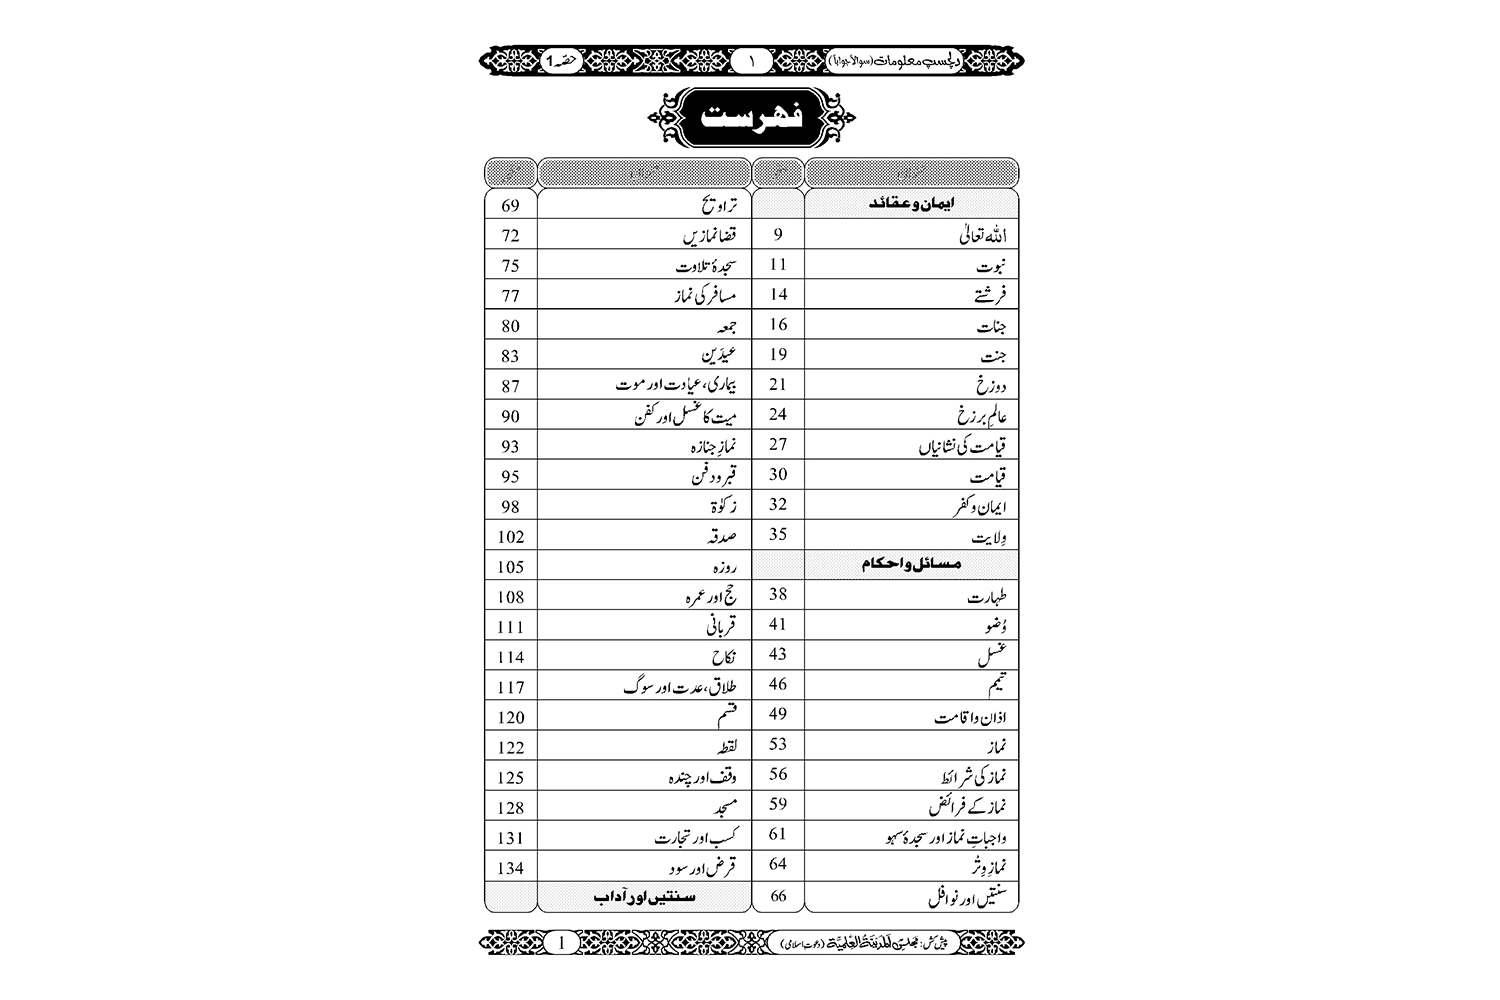 دلچسپ معلومات (سوالاً جواباً) ۱ حصّہ 1
فہرست
ایمان و عقائد
اللہ تعالیٰ 9
نبوت 11
فرشتے 14
جنات 16
جنت 19
دوزخ 21
عالمِ برزخ 24
قیامت کی نشانیاں 27
قیامت 30
ایمان و کفر 32
وِلایت 35
مسائل و احکام
طہارت 38
وُضو 41
غسل 43
تیمم 46
اذان و اقامت 49
نماز 53
نماز کی شرائط 56
نماز کے فرائض 59
واجباتِ نماز اور سجدۂ سہو 61
نمازِ وِتْر 64
سنتیں اور نوافل 66
تراویح 69
قضا نمازیں 72
سجدۂ تلاوت 75
مسافر کی نماز 77
جمعہ 80
عیدَین 83
بیماری، عیادت اور موت 87
میت کا غسل اور کفن 90
نمازِ جنازہ 93
قبر و دفن 95
زکوٰۃ 98
صدقہ 102
روزہ 105
حج اور عمرہ 108
قربانی 111
نکاح 114
طلاق، عدت اور سوگ 117
قسم 120
لقطہ 122
وقف اور چندہ 125
مسجد 128
کسب اور تجارت 131
قرض اور سود 134
سنتیں اور آداب
پیش کش: مجلس اَلْمَدِیْنَۃُ الْعِلْمِیَّۃ (دعوتِ اسلامی) 1